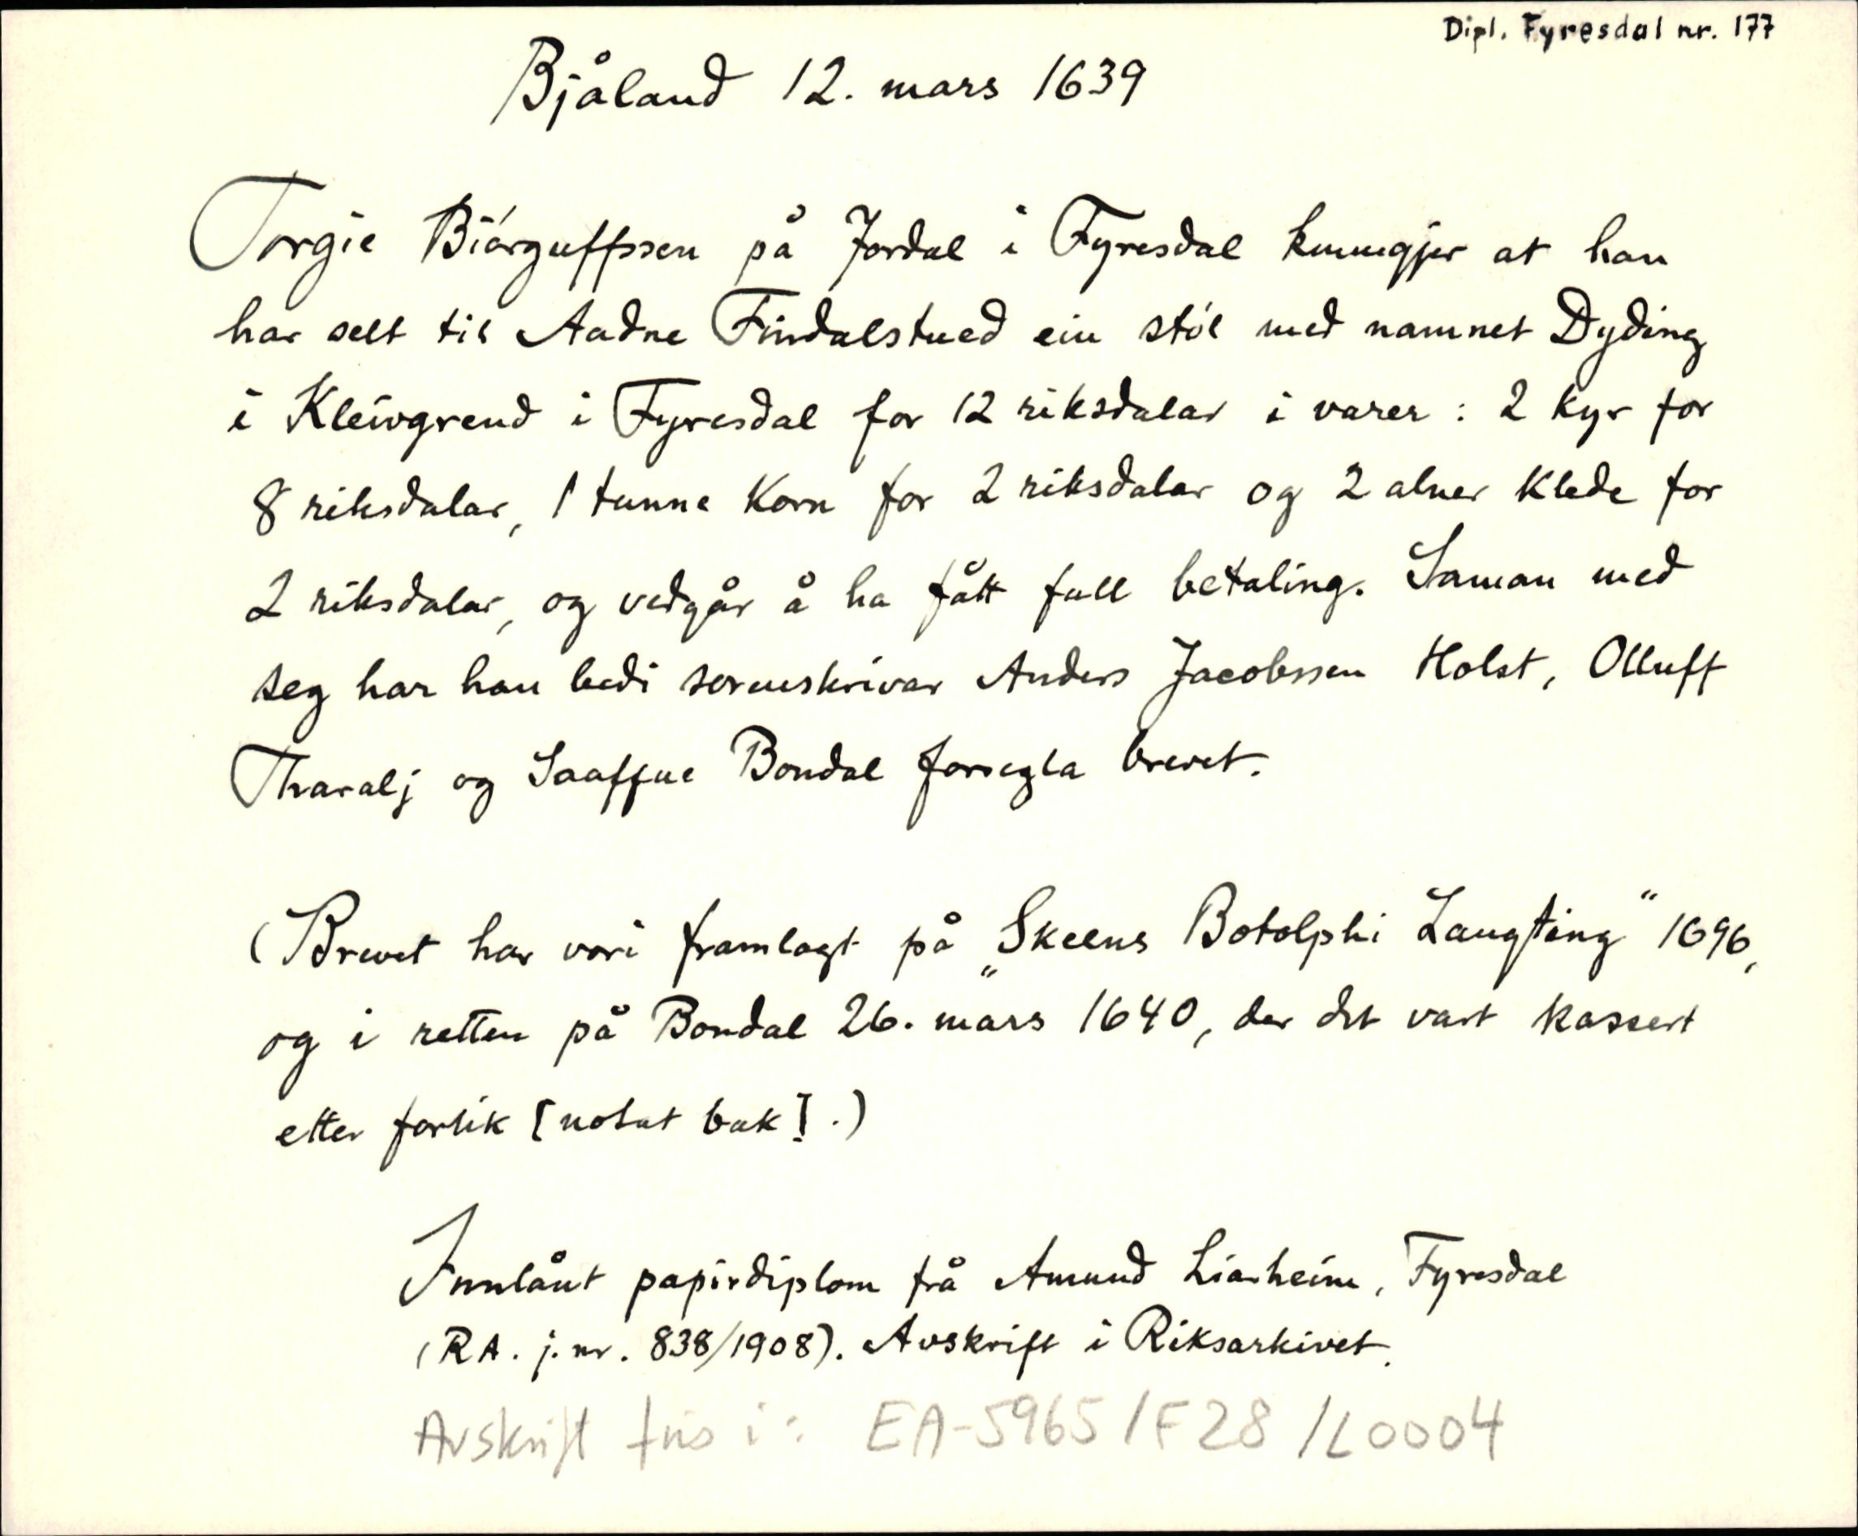 Dipl. Fyresdal nr. 177
Bjåland 12. mars 1639
Torgie Biórguffssen på Jordal i Fyresdal kunngjer at han
har selt til Aadne Findalstued ein støl med namnet Dyding
i Kleivgrend i Fyresdal for 12 riksdalar i varer: 2 kyr for
8 riksdalar, 1 tunne korn for 2 riksdalar og 2 alner klede for
2 riksdalar, og vedgår å ha fått full betaling. Saman med
seg har han bedi sorenskrivar Anders Jacobssen Holst, Olluff
Tharalj og Saaffue Bondal forsegla brevet.
(Brevet har vori framlagt på „Skeens Botolphi Laugting" 1696,
og i retten på Bondal 26. mars 1640, der det vart kassert
etter forlik [notat bak].)
Innlånt papirdiplom frå Amund Liarheim, Fyresdal
(RA. j.nr. 838/1908). Avskrift i Riksarkivet.
Avskrift fins i: EA-5965/F28/L0004